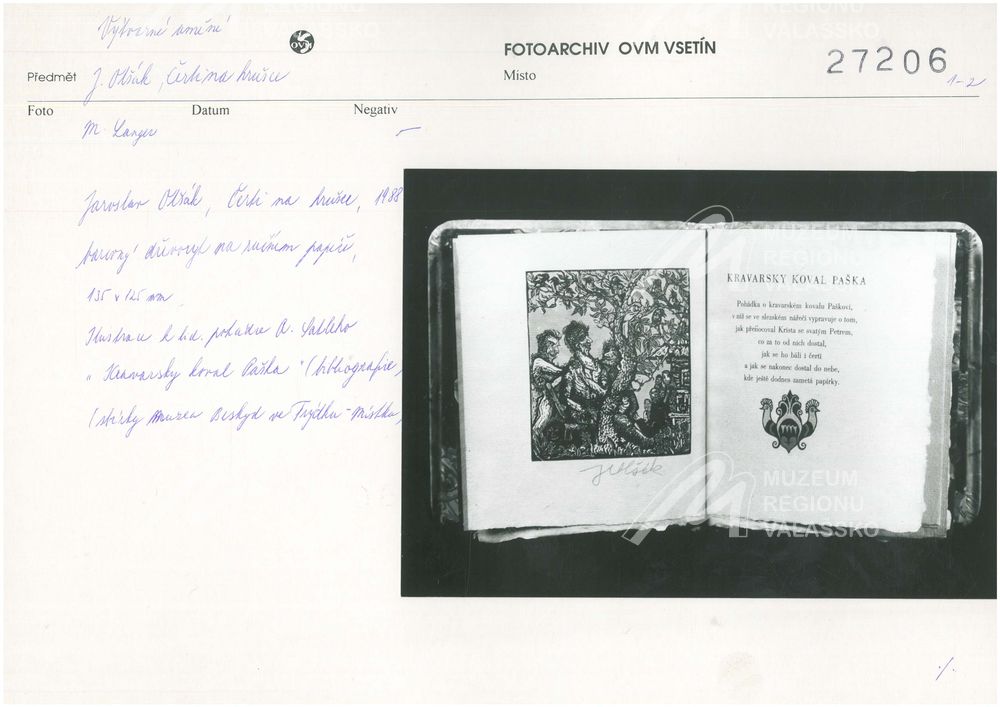 Výtvarné umění
OVM
FOTOARCHIV OVM VSETÍN
27206
1-2
Předmět J. Olšák, Čerti na hrušce
Místo
Foto Datum Negativ
M. Langer
Jaroslav Olšák, Čerti na hrušce, 1988
barevný dřevoryt na ručním papíře,
135 x 125 mm
Ilustrace k lid. pohádce A.
"Kravarsky koval Paška" (bibliografie,
(sbírky Muzea Beskyd ve Frýdku-Místku,
KRAVARSKY KOVAL PAŠKA
Pohádka o kravarském kovalu Paškovi,
v níž se ve slezském nářečí vypravuje o tom,
jak přeňocoval Krista se svatým Petrem,
co za to od nich dostal,
jak se ho báli i čerti
a jak se nakonec dostal do nebe,
kde ještě dodnes zametá papírky.
J Olšák
MUZEUM
REGIONU
VALAŠSKO
MUZEUM
REGIONU
VALAŠSKO
REGIONU
VALAŠSKO
./.